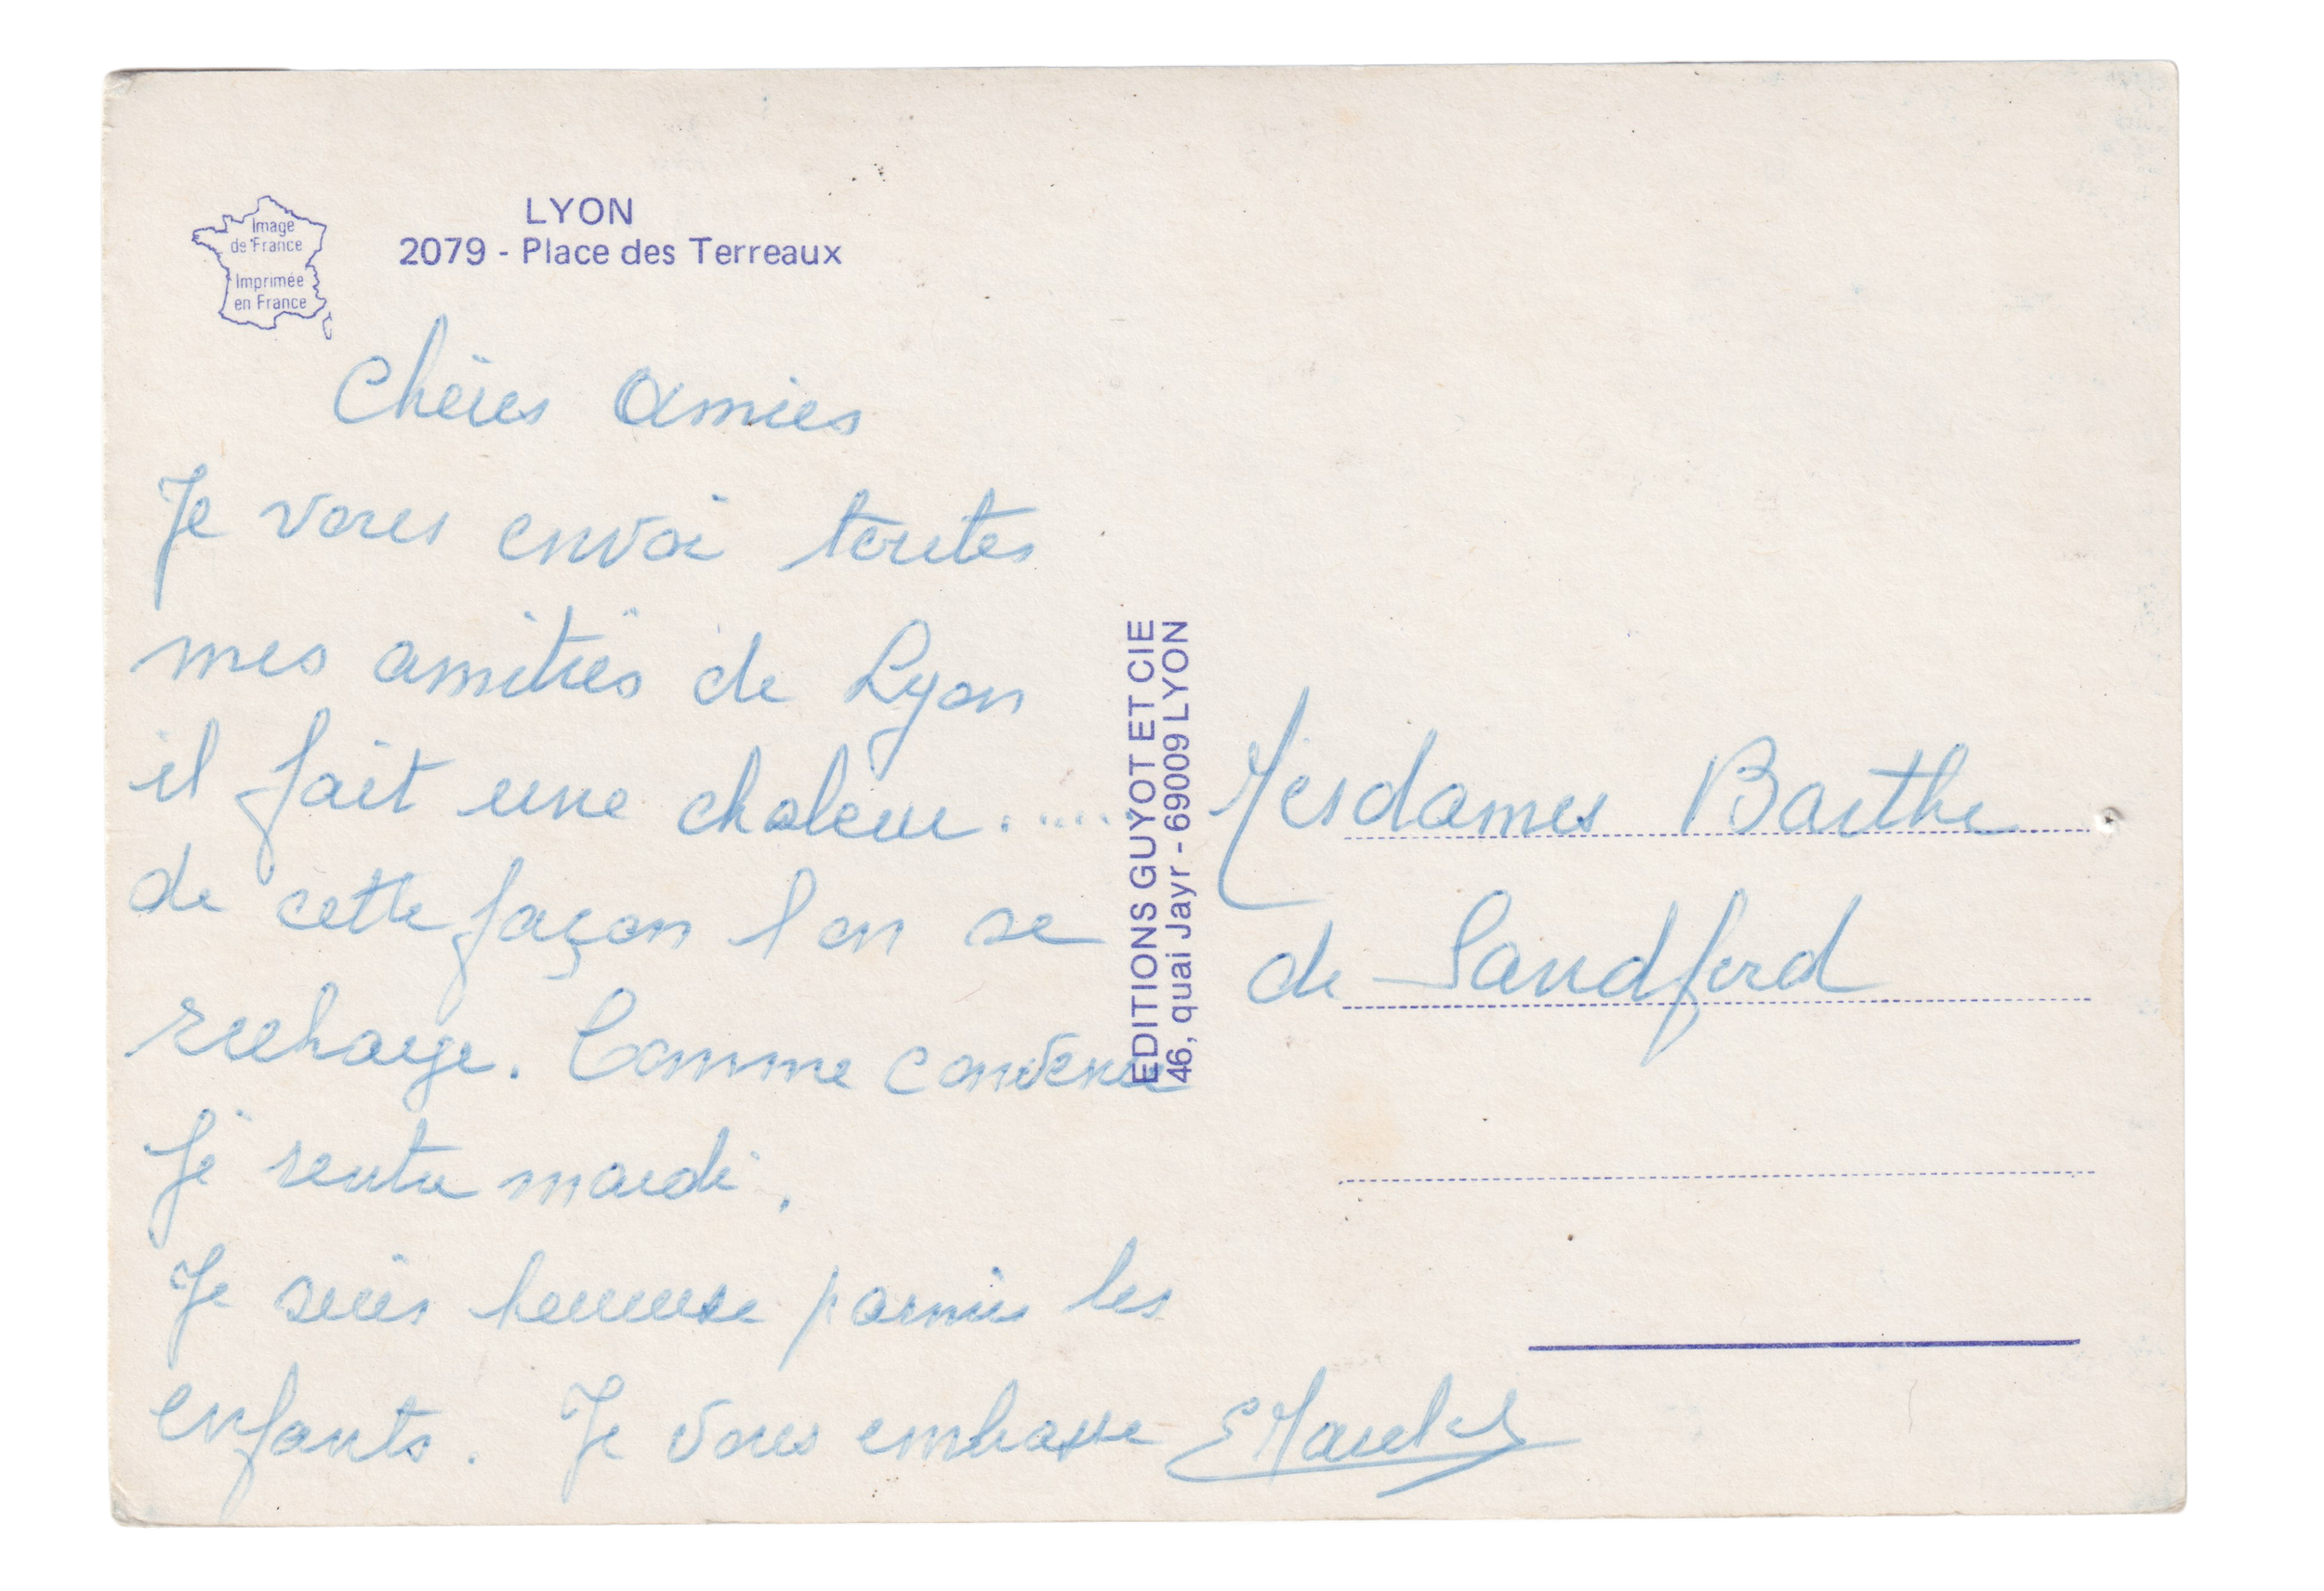 LYON
2079 - Place des Terreaux
Image
de France
Imprimée
en France
Chères Amies
Je vous envoi toutes
mes amitiés de Lyon
il fait une chaleur......
de cette façon l on se
recharge. Comme convenu
Je rentre mardi.
Je suis heureuse parmis les
enfants. Je vous embrasse
EDITIONS GUYOT ET CIE
46, quai Jayr - 69009 LYON
Mesdames Barthe
de Sandford